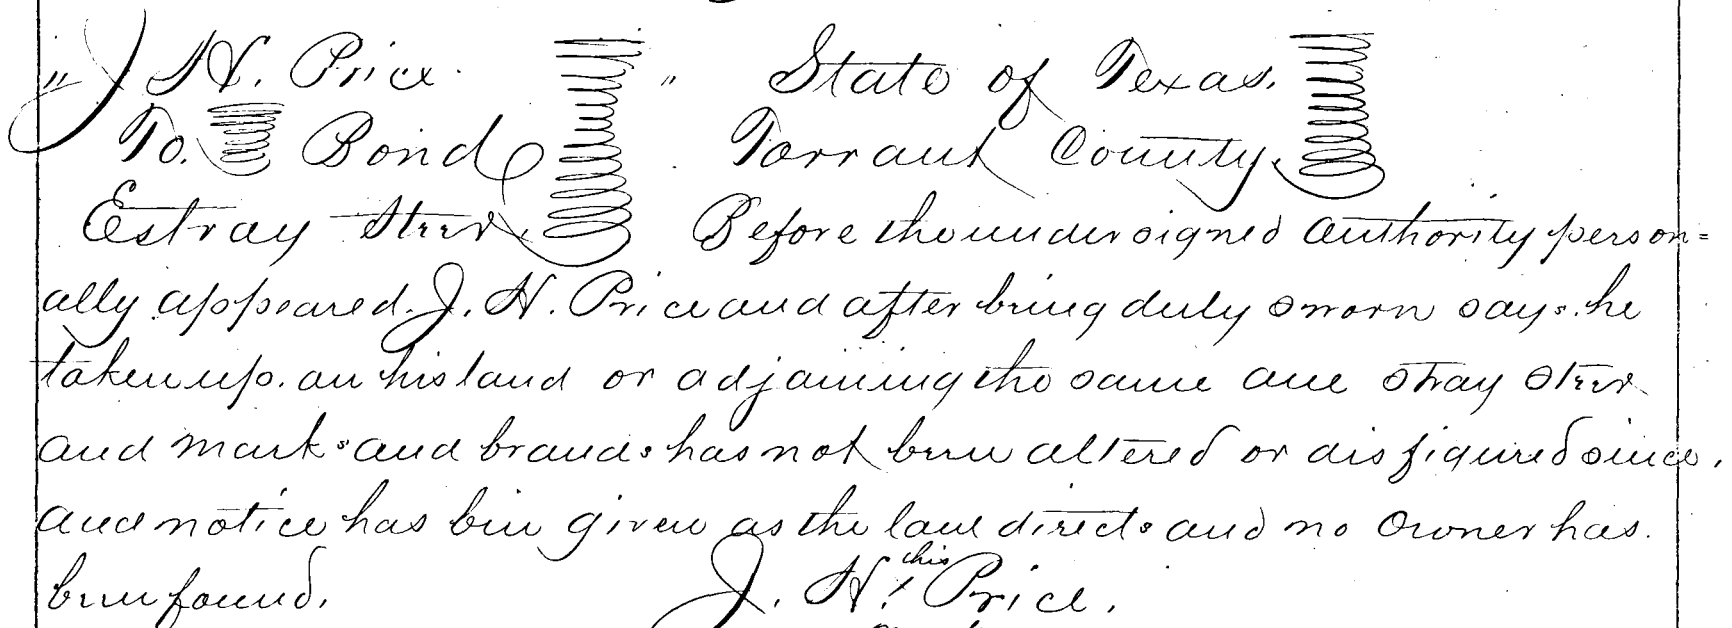 " J H. Price. " State of Texas.
To. Bond Tarrant County.
Estray Steer. Before the undersigned authority person=
ally appeared. J. H. Price and after being duly sworn says. he
taken up. on his land or adjoining the same one stray steer
and marks and brands has not been altered or disfigured since.
and notice has bin given as the law directs and no owner has.
been found. J. H. his x Price.